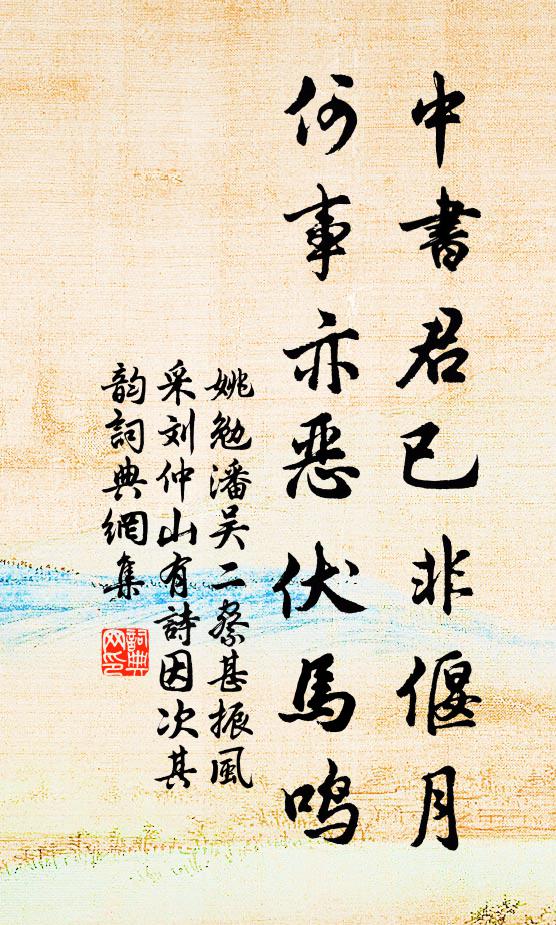 中書君已非偃月
何事亦惡伏馬鸣
姚勉潘吴二察甚振風
采刘仲山有詩因次其
韵詞典網集
詞典
网印